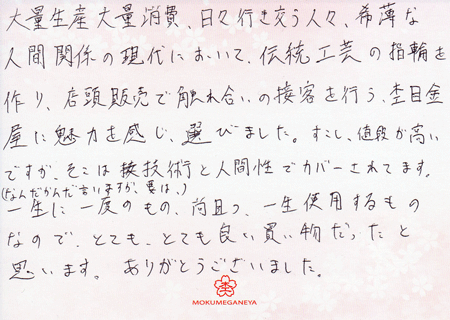 大量生産大量消費、日々行き交う人々、希薄な
人間関係の現代において、伝統工芸の指輪を
作り、店頭販売で触れ合いの接客を行う、杢目金
屋に魅力を感じ、選びました。すこし、値段が高い
ですが、そこは接技術と人間性でカバーされてます。
(なんだかんだ言いますが、要は、)
一生に一度のもの、尚且つ、一生使用するもの
なので、とても、とても良い買い物だったと
思います。ありがとうございました。
MOKUMEGANEYA